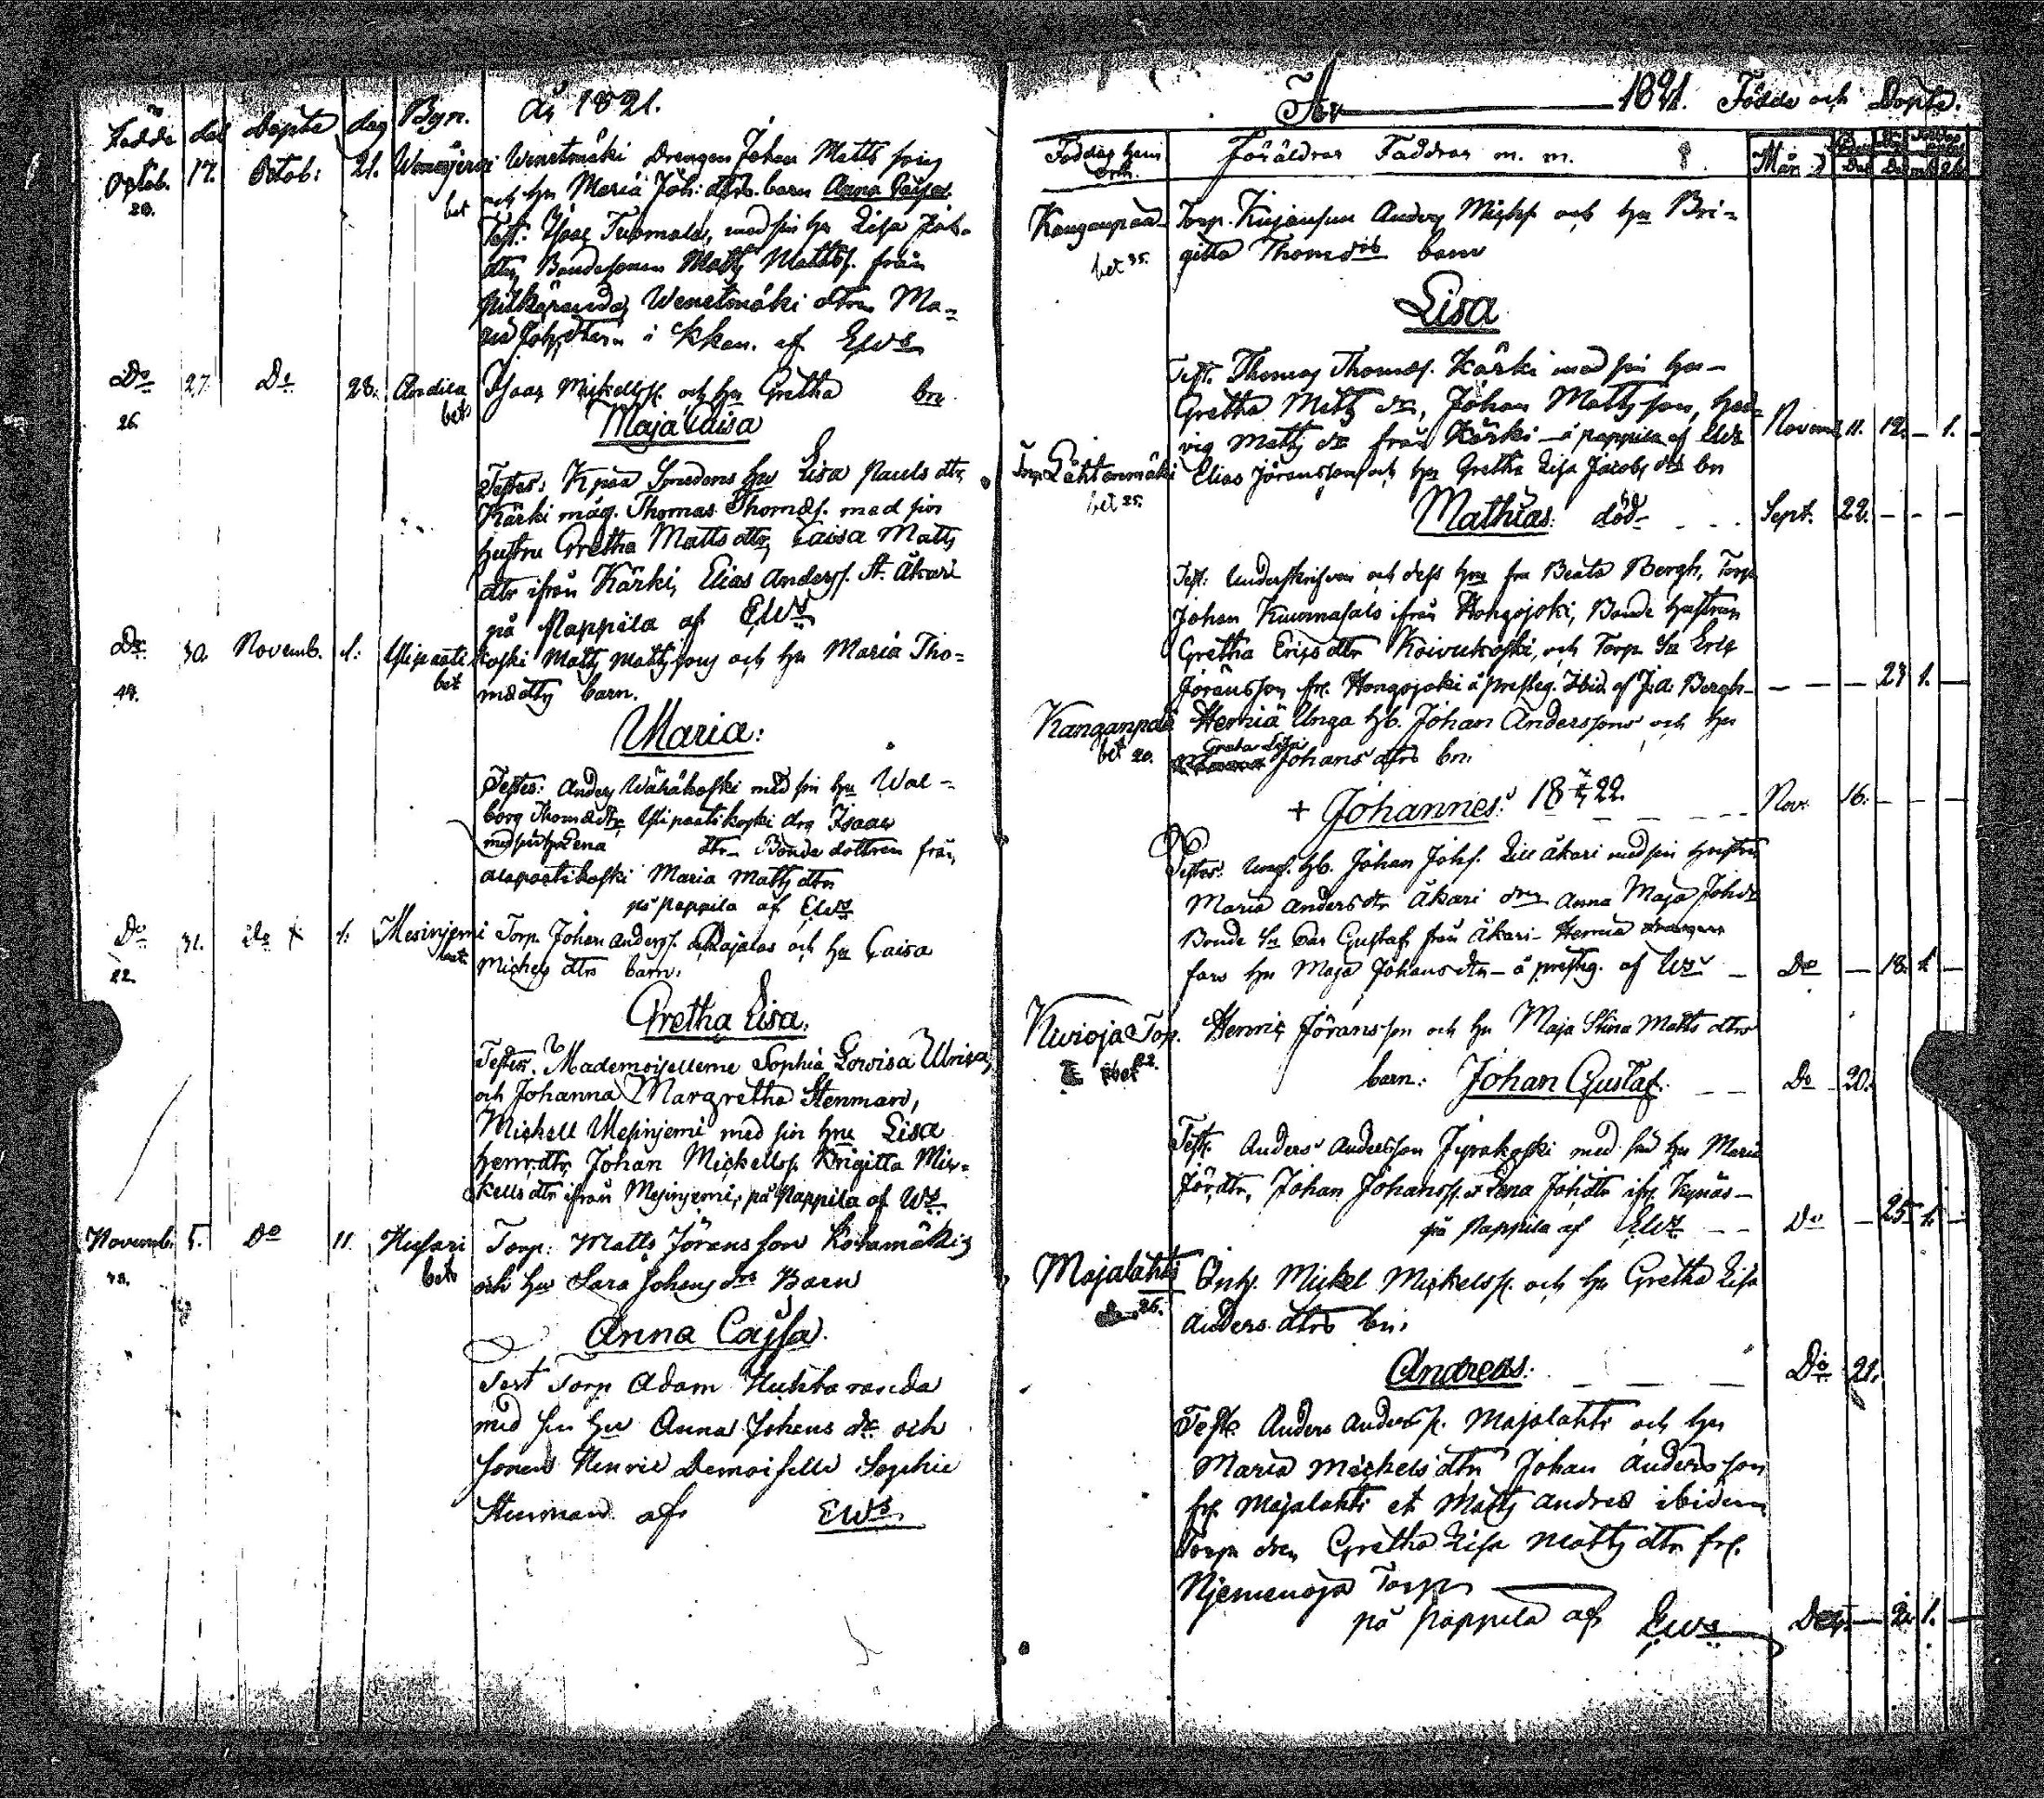 Födde dag Döpte dag Byn. År 1821.
Octob. 17. Octob: 21. Wenetmäki Drengen Johan Matts sons
20. bet och hu Maria Joh: dtrs barn Anna Cajsa
Test: Isaac Tuomala, med sin hu Lisa Joh-
dtr, Bondesonen Matts Mattss. från
Wenetmäki dtrn Ma-
ria Joh.dtern i Kkan. af EWs
Do 27. Do 28. Andila Isaac Mickelss. och hu Gretha bn
26. bet
Maja Caisa
Testes: Smedens hu Lisa Pauls dtr,
Kärki måg. Thomas Thomss. med sin
hustru Gretha Matts dtr, Caisa Matts
dtr ifrån Kärki, Elias Anderss. A. Äkäri
på Pappila af EWs
Do 30. Novemb. 1. Ylipaatikoski Matts Matts sons och hu Maria Tho-
44. bet mædtrs barn.
Maria:
Testes: Anders Wähäkoski med sin hu Wal-
borg Thomædtr Ylipaatikoski drg Isaac
med sin hu Lena dtr Bonde dottren från
Alapaatikoski Maria Matts dtr
på Pappila af EWs
Do 31. Do 1. Mesinjemi Torp. Johan Anderss. Rajalas och hu Caisa
22. Michels dtrs barn.
Gretha Lisa.
Testes. Mademoisellerne Sophia Lowisa Ulrica,
och Johanna Margretha Stenman,
Mickell Mesinjemi med sin hu Lisa
Henr.dtr, Johan Mickelss. Brigitta Mic-
kells dtr ifrån Mesinjemi, på Pappila af Ws.
Novemb. 5. Do 11. Husari Torp: Matts Jöransson Kotamäkis
bet och hu Sara Johans drs Barn
Anna Cajsa.
Test Torp Adam Huhtaranda
med sin hu Anna Johans dr och
sonen Henric Demoiselle Sophie
Stenman af EWs
År 1821. Födde och Döpte.
Föräldrar Faddrar m. m. Mån.
Kanganpää Torp. Anders Michs. och hu Bri-
bet 35. gitta Thomdrs barn
Lisa
Test. Thomas Thomss. Kärki med sin hu
Gretha Matts dr, Johan Mattsson, Hed-
vig Matts dr från Kärki – å pappila af EWs Novemb. 11. 12. – 1. –
Torp. Lähtenmäki Elias Jöransson och hu Gretha Lisa Jacobs drs bn
bet 25.
Mathias: död – Sept. 22. – – –
Test: Underskrifven och dess hu fru Beata Bergh, Torp
Johan Kuurnasalo ifrån Hongojoki, Bonde hustrun
Gretha Erics dtr Koivukoski, och Torp Sn Eric
Jöransson fr. Hongojoki å presteg. Ibid. af J.A. Bergh – – – 23 1. –
Kanganpää Herniä Unga hb. Johan Anderssons och hu
bet 20. Greta Lisa Johans dtrs bn.
+ Johannes: 18 22. Nov. 16. – – –
Testes: Ung. hb. Johan Johs. Lill Äkäri med sin hustru
Maria Anders dtr Äkäri drn Anna Maja Joh dr
Bonde Sn Car Gustaf från Äkäri – Herniä
fars hu Maja Johans dtr – å presteg. af Ws – Do – 18. 1. –
Kivioja Torp. Henric Jöransson och hu Maja Stina Matts dtrs
bet 22.
barn: Johan Gustaf. – – Do 20.
Test. Anders Andersson Jyräkoski med sin hu Maria
Jör.dtr, Johan Johanss. et Lena Joh.dtr ifr. Kynäs –
på Pappila af EWs – – Do – 25 1. –
Majalahti Inh. Mickel Mickelss. och hu Gretha Lisa
26. Anders dtrs bn.
Andreas: – – – Do 21.
Test: Anders Anderss. Majalahti och hu
Maria Michels dtr Johan Andersson
fr. Majalahti et Matts Andres ibidem
Torp drn Gretha Lisa Matts dtr fr.
Njemenoja Torp
på Pappila af EWs Dec. – 2. 1. –